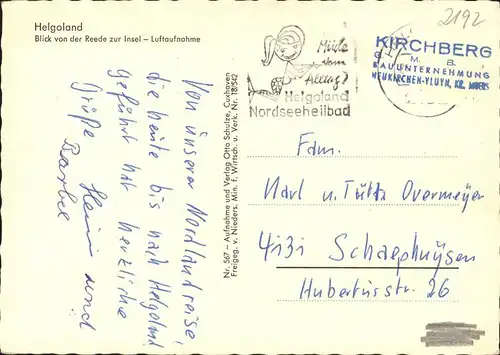 2192
Helgoland
Blick von der Reede zur Insel – Luftaufnahme
Müde
vom
Alltag?
Helgoland
Nordseeheilbad
KIRCHBERG
M. B.
BAUUNTERNEHMUNG
NEUKIRCHEN-VLUYN, KR. MOERS
Von unserer Nordlandreise,
die heute bis nach Helgoland
geführt hat herzliche
Grüße Heini und
Bärbel
Nr. 567 – Aufnahme und Verlag Otto Schulze, Cuxhaven
Freigeg. v. Nieders. Min. f. Wirtsch. u. Verk. Nr. 18542
Fam.
Karl u. Jutta Overmeyer
4131 Schaephuysen
Hubertusstr. 26